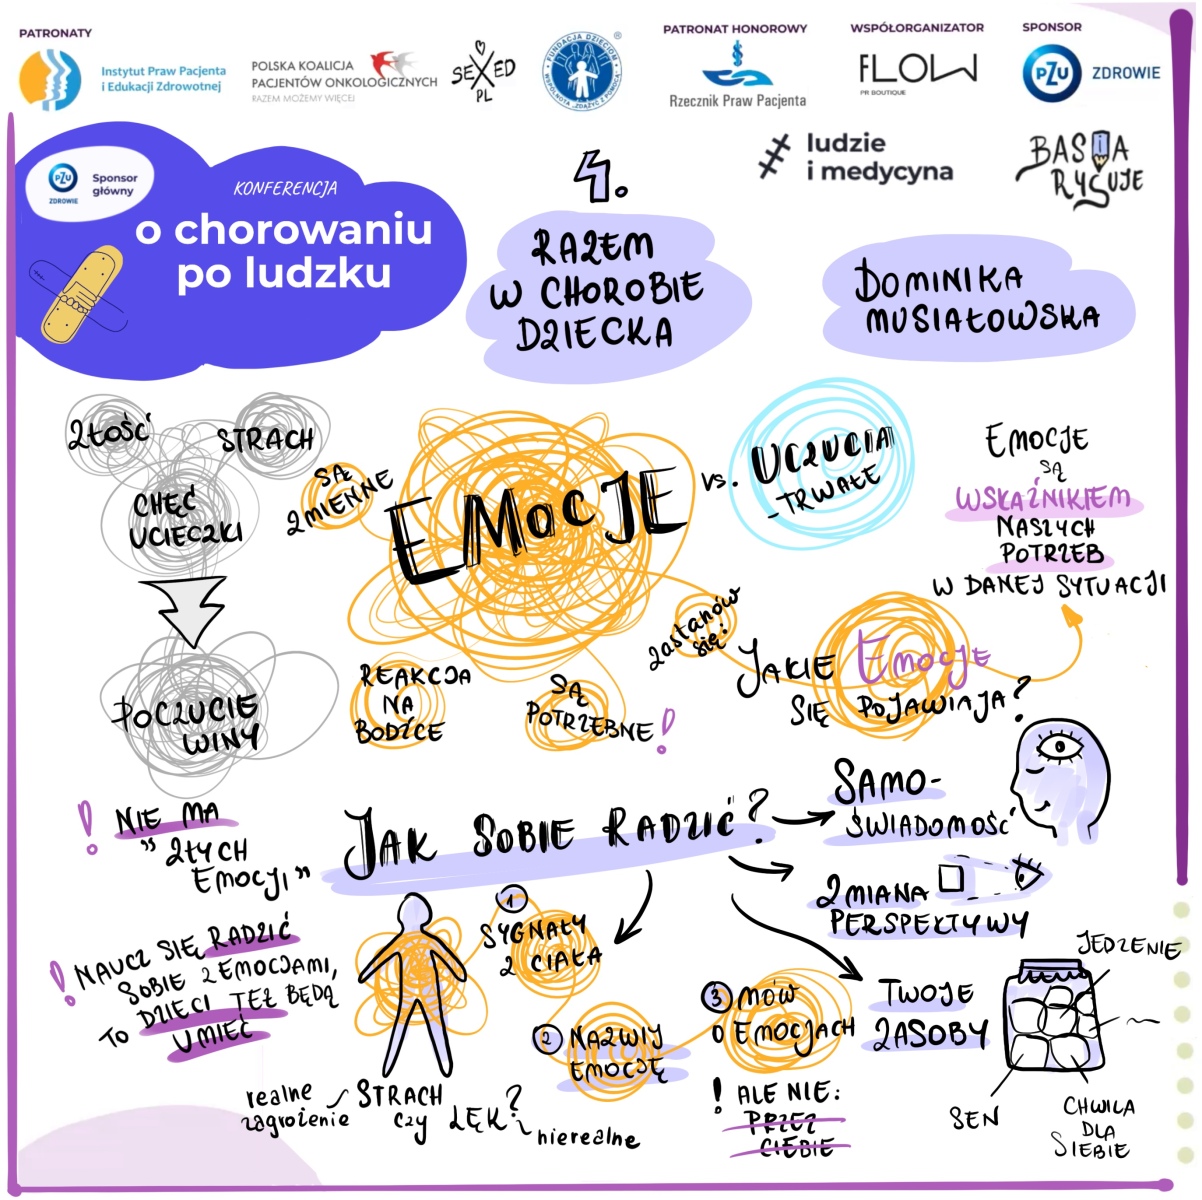 PATRONATY
Instytut Praw Pacjenta
i Edukacji Zdrowotnej
POLSKA KOALICJA
PACJENTÓW ONKOLOGICZNYCH
RAZEM MOŻEMY WIĘCEJ
SEXED
PL
FUNDACJA DZIECIOM
"ZDĄŻYĆ Z POMOCĄ"
PATRONAT HONOROWY
Rzecznik Praw Pacjenta
WSPÓŁORGANIZATOR
FLOW
PR BOUTIQUE
SPONSOR
PZU ZDROWIE
ludzie
i medycyna
BASIA
RYSUJE
PZU
ZDROWIE
Sponsor
główny
KONFERENCJA
o chorowaniu
po ludzku
4.
RAZEM
W CHOROBIE
DZIECKA
DOMINIKA
MUSIAŁOWSKA
ZŁOŚĆ
STRACH
CHĘĆ
UCIECZKI
POCZUCIE
WINY
! NIE MA
"ZŁYCH
EMOCJI"
! NAUCZ SIĘ RADZIĆ
SOBIE Z EMOCJAMI,
TO DZIECI TEŻ BĘDĄ
UMIEĆ
SĄ
ZMIENNE
EMOCJE
vs. UCZUCIA
- TRWAŁE
REAKCJA
NA
BODŹCE
SĄ
POTRZEBNE!
zastanów
się!
JAKIE EMOCJE
SIĘ POJAWIAJĄ?
EMOCJE
SĄ
WSKAŹNIKIEM
NASZYCH
POTRZEB
W DANEJ SYTUACJI
JAK SOBIE RADZIĆ?
SAMO-
ŚWIADOMOŚĆ
ZMIANA
PERSPEKTYWY
TWOJE
ZASOBY
JEDZENIE
SEN
CHWILA
DLA
SIEBIE
1
SYGNAŁY
Z CIAŁA
2 NAZWIJ
EMOCJĘ
3 MÓW
O EMOCJACH
! ALE NIE:
PRZEZ
CIEBIE
realne
zagrożenie
STRACH
czy LĘK?
nierealne